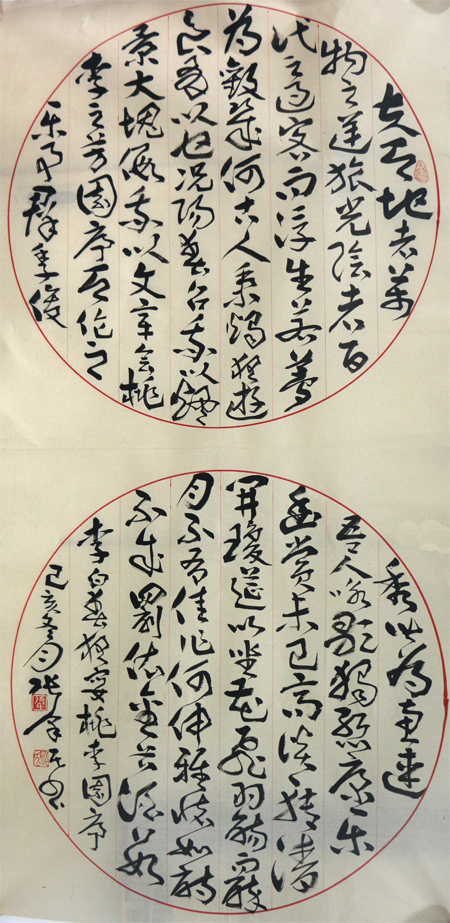 夫天地者萬
物之逆旅光陰者百
代之過客而浮生若夢
為歡幾何古人秉燭夜遊
良有以也況陽春召我以煙
景大塊假我以文章會桃
李之芳園序天倫之
樂事群季俊
秀皆為惠連
吾人咏歌獨慚康樂
幽賞未已高談轉清
開瓊筵以坐花飛羽觴而醉
月不有佳作何伸雅懷如詩
不成罰依金谷酒數
李白春夜宴桃李園序
己亥冬月